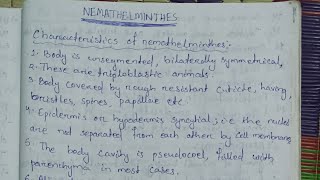 NEMATHELMINTHES
Characteristics of nemathelminthes:-
1. Body is unsegmented, bilaterally symmetrical,
2. These are triploblastic animals
3. Body covered by rough resistant cuticle, having
bristles, spines, papillae etc
4. Epidermis or hypodermis syncytial; i.e the nuclei
are not separated from each other by cell membrane
5. The body cavity is pseudocoel, filled with
parenchyma in most cases.